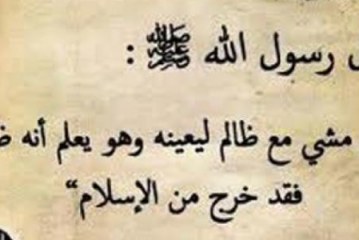 رسول الله ﷺ :
مشي مع ظالم ليعينه وهو يعلم أنه
فقد خرج من الإسلام“